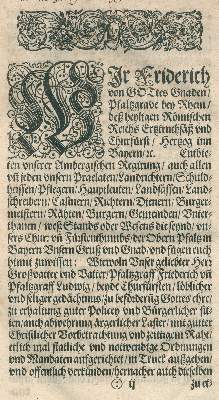 WJr Friderich
von GOttes Gnaden/
Pfaltzgrave bey Rhein/
deß heyligen Römischen
Reichs Ertztruchsäß und
Churfürst/ Hertzog inn
Bayern/ꝛc. Entbie-
ten unserer Ambergischen Regirung/ auch allen
uñ jeden unsern Praelaten/ Landrichtern/ Schuld-
heissen/ Pflegern/ Hauptleuten/ Landsassen/ Land-
schreibern/ Castnern/ Richtern/ Dienern/ Burger-
meistern/ Räthen/ Burgern/ Gemeinden/ Unter-
thanen/ weß Stands oder Wesens die seynd/ un-
sers Chur uñ Fürstenthumbs der Obern Pfaltz in
Bayern/ Unsern Gruß und Gnad/ und fügen euch
hiemit zuwissen: Wiewoln Unser geliebter Herr
Großvatter und Vatter/ Pfaltzgraff Friderich uñ
Pfaltzgraff Ludwig/ beyde Churfürsten/ löblicher
und seliger gedächtnuß/ zu beförderüg Gottes ehr/
zu erhaltung guter Policey und Bürgerlicher sit-
ten/ auch abwehrung ärgerlicher Laster/ mit guter
Christlicher Vorbetrachtung und zeitigem Raht
etlich mal stattliche und notwendige Ordnungen
und Mandaten auffgerichtet/ in Truck außgehen/
und offentlich verkünden/ hernacher auch dieselben
ij zu et-